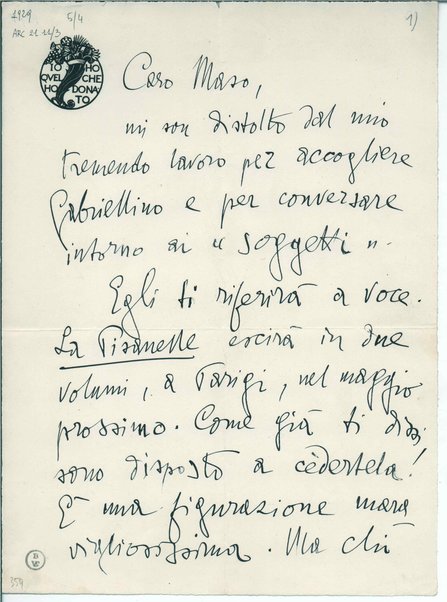 1929 5/4 1)
ARC 21.22/3
IO HO
QVEL CHE
HO DONA
TO
Caro Maso,
mi son distolto dal mio
tremendo lavoro per accogliere
Gabriellino e per conversare
intorno ai "soggetti".
Egli ti riferirà a voce.
La Pisanelle escirà in due
volumi, a Parigi, nel maggio
prossimo. Come già ti dissi,
sono disposto a cèdertela!
È una figurazione mara
vigliosissima. Ma chi
359